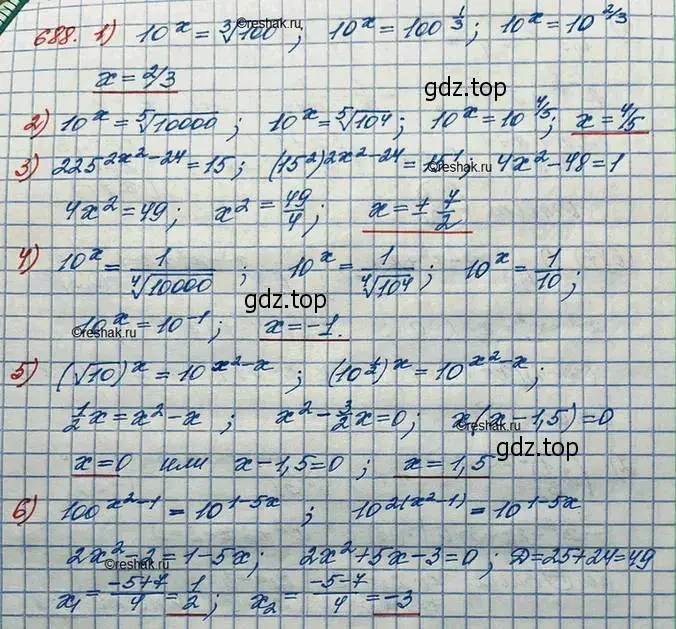 688. 1) 10^x = ∛100 ; 10^x = 100^(1/3) ; 10^x = 10^(2/3)
x = 2/3
2) 10^x = ⁵√10000 ; 10^x = ⁵√10⁴ ; 10^x = 10^(4/5) ; x = 4/5
3) 225^(2x²-24) = 15 ; (15²)^(2x²-24) = 15¹ ; 4x² - 48 = 1
4x² = 49 ; x² = 49/4 ; x = ± 7/2
4) 10^x = 1/⁴√10000 ; 10^x = 1/⁴√10⁴ ; 10^x = 1/10 ;
10^x = 10^(-1) ; x = -1.
5) (√10)^x = 10^(x²-x) ; (10^(1/2))^x = 10^(x²-x) ;
1/2x = x² - x ; x² - 3/2x = 0 ; x(x - 1,5) = 0
x = 0 или x - 1,5 = 0 ; x = 1,5
6) 100^(x²-1) = 10^(1-5x) ; 10^(2(x²-1)) = 10^(1-5x)
2x² - 2 = 1 - 5x ; 2x² + 5x - 3 = 0 ; D = 25 + 24 = 49
x₁ = (-5+7)/4 = 1/2 ; x₂ = (-5-7)/4 = -3
©reshak.ru
gdz.top
©reshak.ru
gdz.top
©reshak.ru
©reshak.ru
gdz.top
©reshak.ru